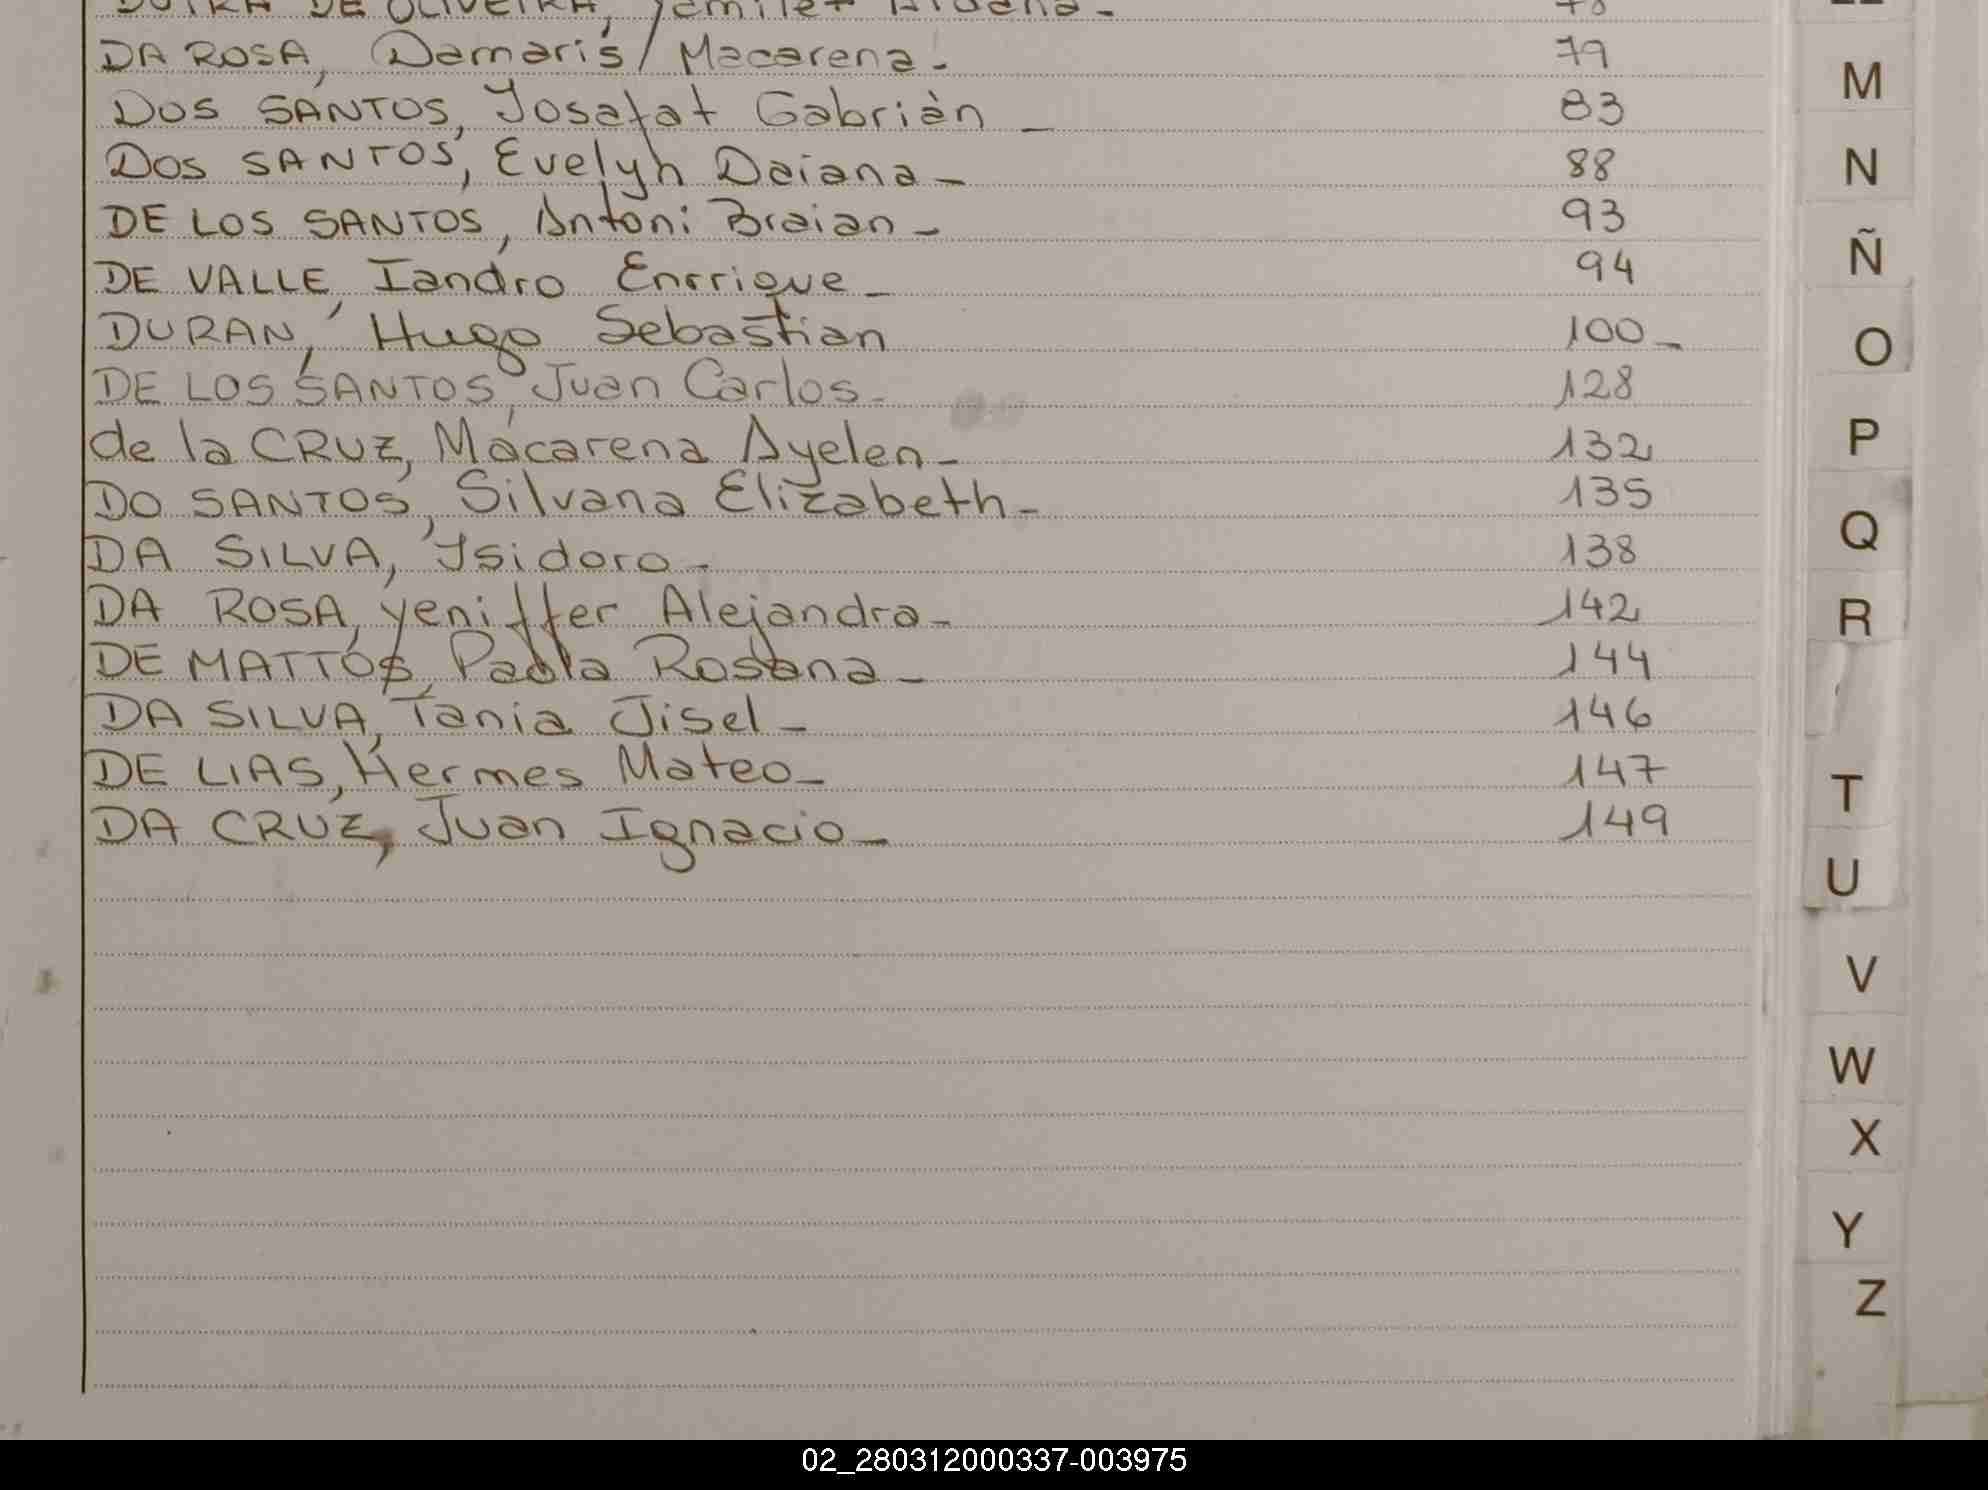 DUTRA DE OLIVEIRA, Yamilet 78
DA ROSA, Damaris Macarena - 79
DOS SANTOS, Josafat Gabrián - 83
DOS SANTOS, Evelyn Daiana - 88
DE LOS SANTOS, Antoni Braian - 93
DE VALLE, Iandro Enrrique - 94
DURAN, Hugo Sebastian 100 -
DE LOS SANTOS, Juan Carlos - 128
de la CRUZ, Macarena Ayelen - 132
DO SANTOS, Silvana Elizabeth - 135
DA SILVA, Isidoro - 138
DA ROSA, yeniffer Alejandra - 142
DE MATTOS, Paola Rosana - 144
DA SILVA, Tania Jisel - 146
DE LIAS, Hermes Mateo - 147
DA CRUZ, Juan Ignacio - 149
M
N
Ñ
O
P
Q
R
T
U
V
W
X
Y
Z
02_280312000337-003975